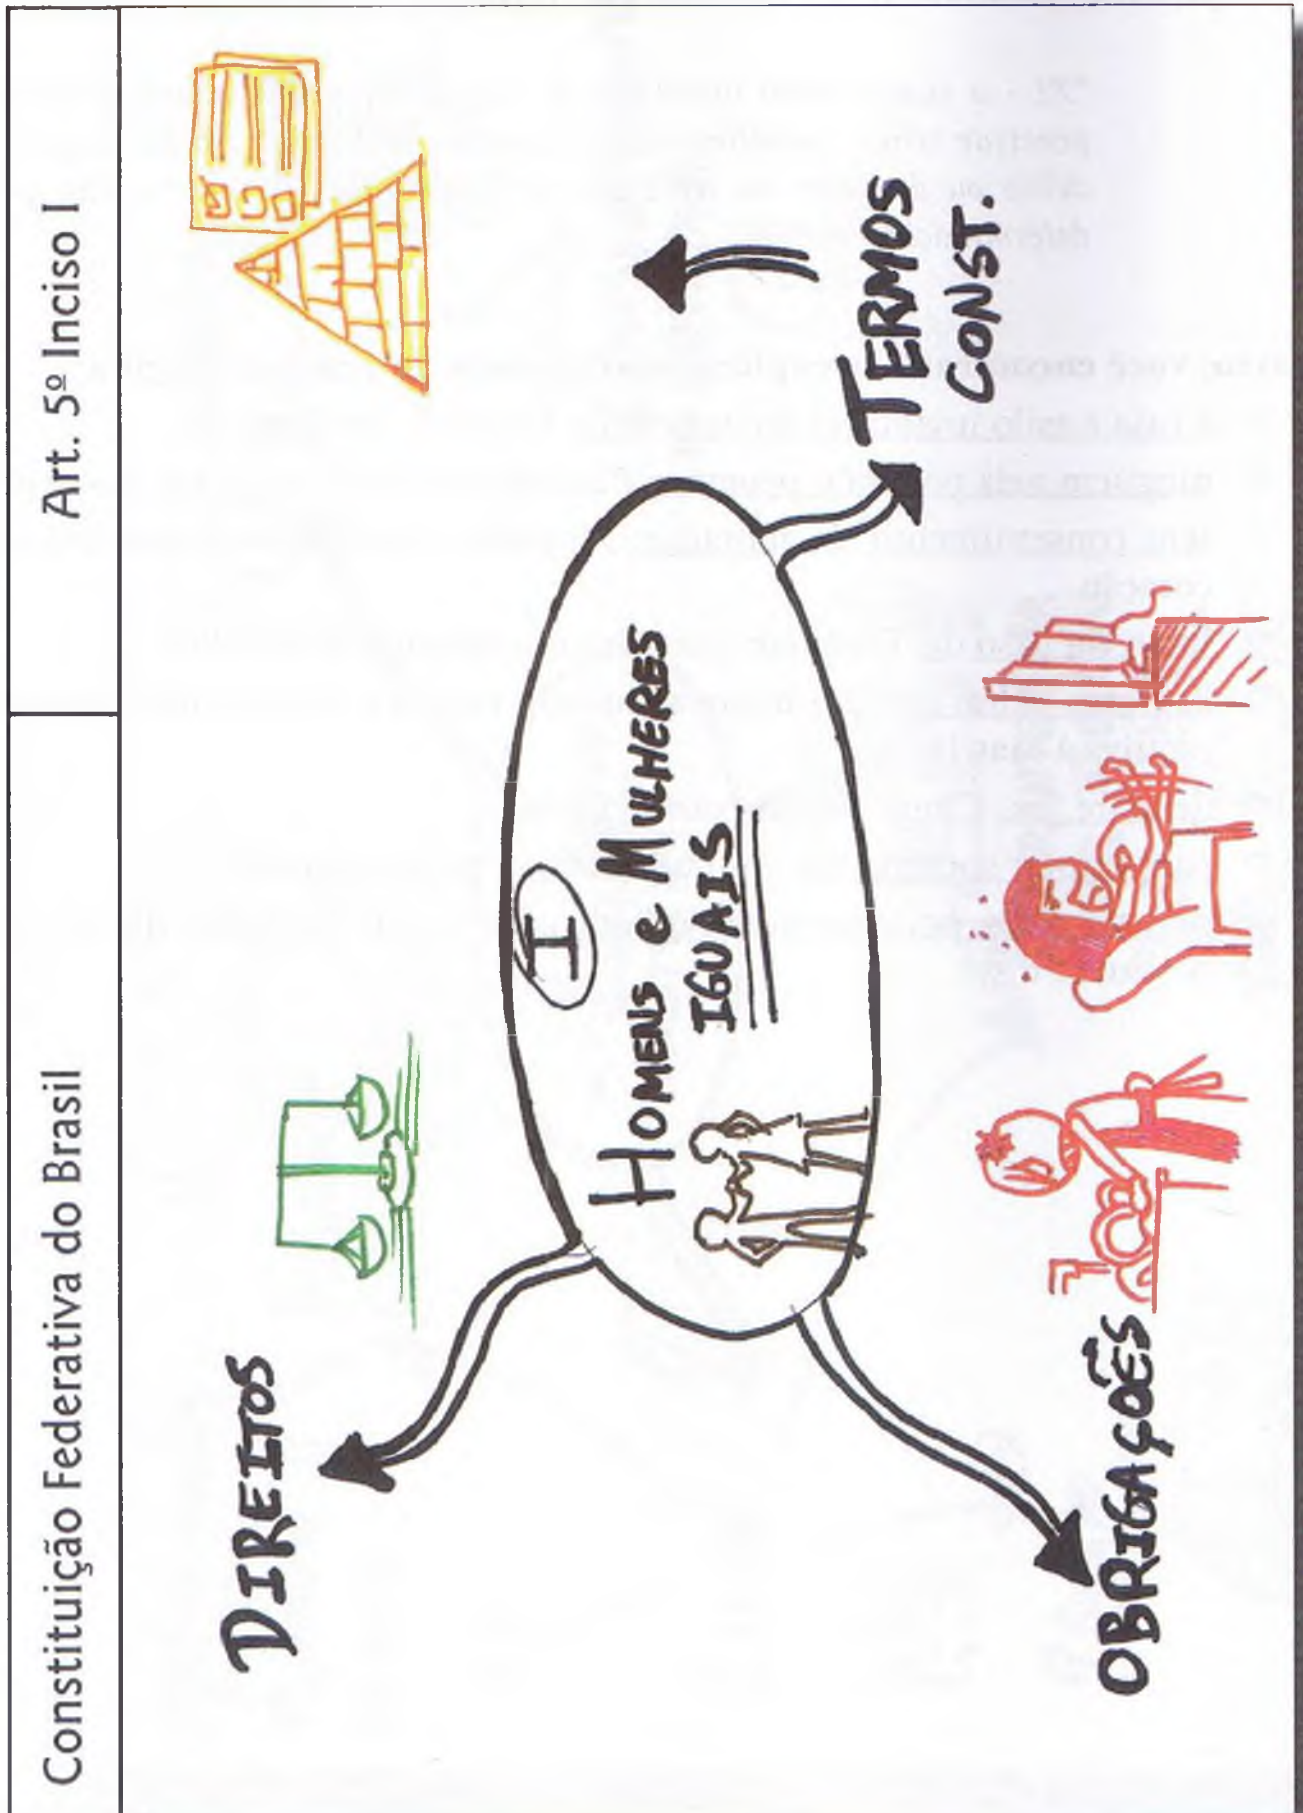 Constituição Federativa do Brasil
Art. 5º Inciso I
DIREITOS
I
HOMENS e MULHERES
IGUAIS
TERMOS
CONST.
OBRIGAÇÕES